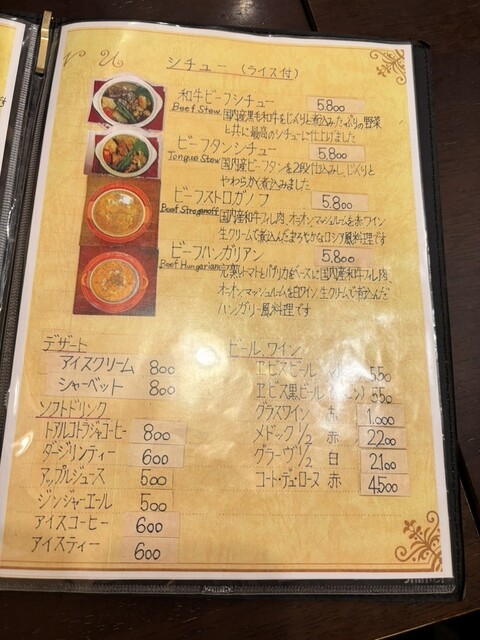 シチュー (ライス付)
和牛ビーフシチュー 5.800
Beef Stew 国内産黒毛和牛をじっくりと煮込みたっぷりの野菜
と共に最高のシチューに仕上げました
ビーフタンシチュー 5.800
Tongue Stew 国内産ビーフタンを2段仕込みし、じっくりと
やわらかく煮込みました
ビーフストロガノフ 5.800
Beef Stroganoff 国内産和牛フィレ肉、オニオンマッシュルームを赤ワイン
生クリームで煮込んだまろやかなロシア風料理です
ビーフハンガリアン 5.800
Beef Hungarian 完熟トマトとパプリカをベースに国内産和牛フィレ肉、
オニオンマッシュルームを白ワイン生クリームで煮込んだ
ハンガリー風料理です
デザート
アイスクリーム 800
シャーベット 800
ソフトドリンク
トアルコトラジャコーヒー 800
ダージリンティー 600
アップルジュース 500
ジンジャーエール 500
アイスコーヒー 600
アイスティー 600
ビール、ワイン
ヱビスビール 550
ヱビス黒ビール 550
グラスワイン 1.000
メドック 1/2 赤 2.200
グラーヴ 1/2 白 2.100
コート・デュ・ローヌ 赤 4.500